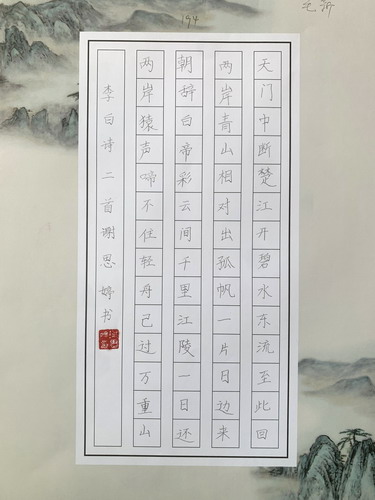 天门中断楚江开碧水东流至此回
两岸青山相对出孤帆一片日边来
朝辞白帝彩云间千里江陵一日还
两岸猿声啼不住轻舟已过万重山
李白诗二首谢思婷书
194